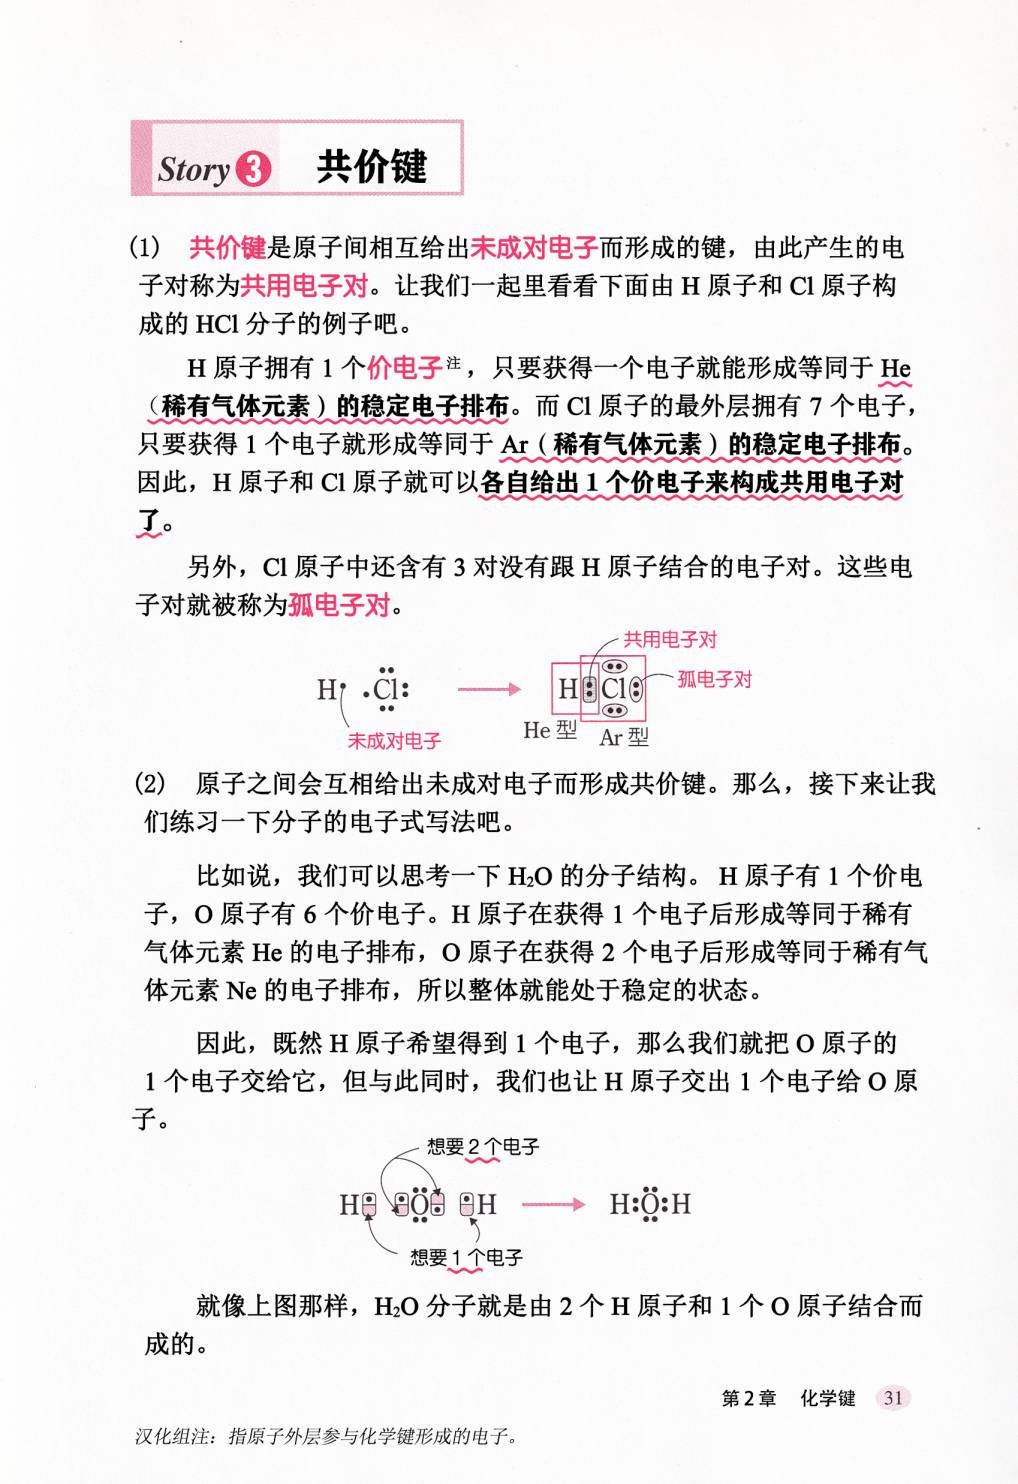 Story 3 共价键
(1) 共价键是原子间相互给出未成对电子而形成的键，由此产生的电
子对称为共用电子对。让我们一起里看看下面由 H 原子和 Cl 原子构
成的 HCl 分子的例子吧。
H 原子拥有 1 个价电子注，只要获得一个电子就能形成等同于 He
（稀有气体元素）的稳定电子排布。而 Cl 原子的最外层拥有 7 个电子，
只要获得 1 个电子就形成等同于 Ar（稀有气体元素）的稳定电子排布。
因此，H 原子和 Cl 原子就可以各自给出 1 个价电子来构成共用电子对
了。
另外，Cl 原子中还含有 3 对没有跟 H 原子结合的电子对。这些电
子对就被称为孤电子对。
共用电子对
H· ·Cl: → H:Cl: 孤电子对
未成对电子 He 型 Ar 型
(2) 原子之间会互相给出未成对电子而形成共价键。那么，接下来让我
们练习一下分子的电子式写法吧。
比如说，我们可以思考一下 H₂O 的分子结构。 H 原子有 1 个价电
子，O 原子有 6 个价电子。H 原子在获得 1 个电子后形成等同于稀有
气体元素 He 的电子排布，O 原子在获得 2 个电子后形成等同于稀有气
体元素 Ne 的电子排布，所以整体就能处于稳定的状态。
因此，既然 H 原子希望得到 1 个电子，那么我们就把 O 原子的
1 个电子交给它，但与此同时，我们也让 H 原子交出 1 个电子给 O 原
子。
想要 2 个电子
H· ·O· ·H → H:O:H
想要 1 个电子
就像上图那样，H₂O 分子就是由 2 个 H 原子和 1 个 O 原子结合而
成的。
第 2 章 化学键 31
汉化组注：指原子外层参与化学键形成的电子。